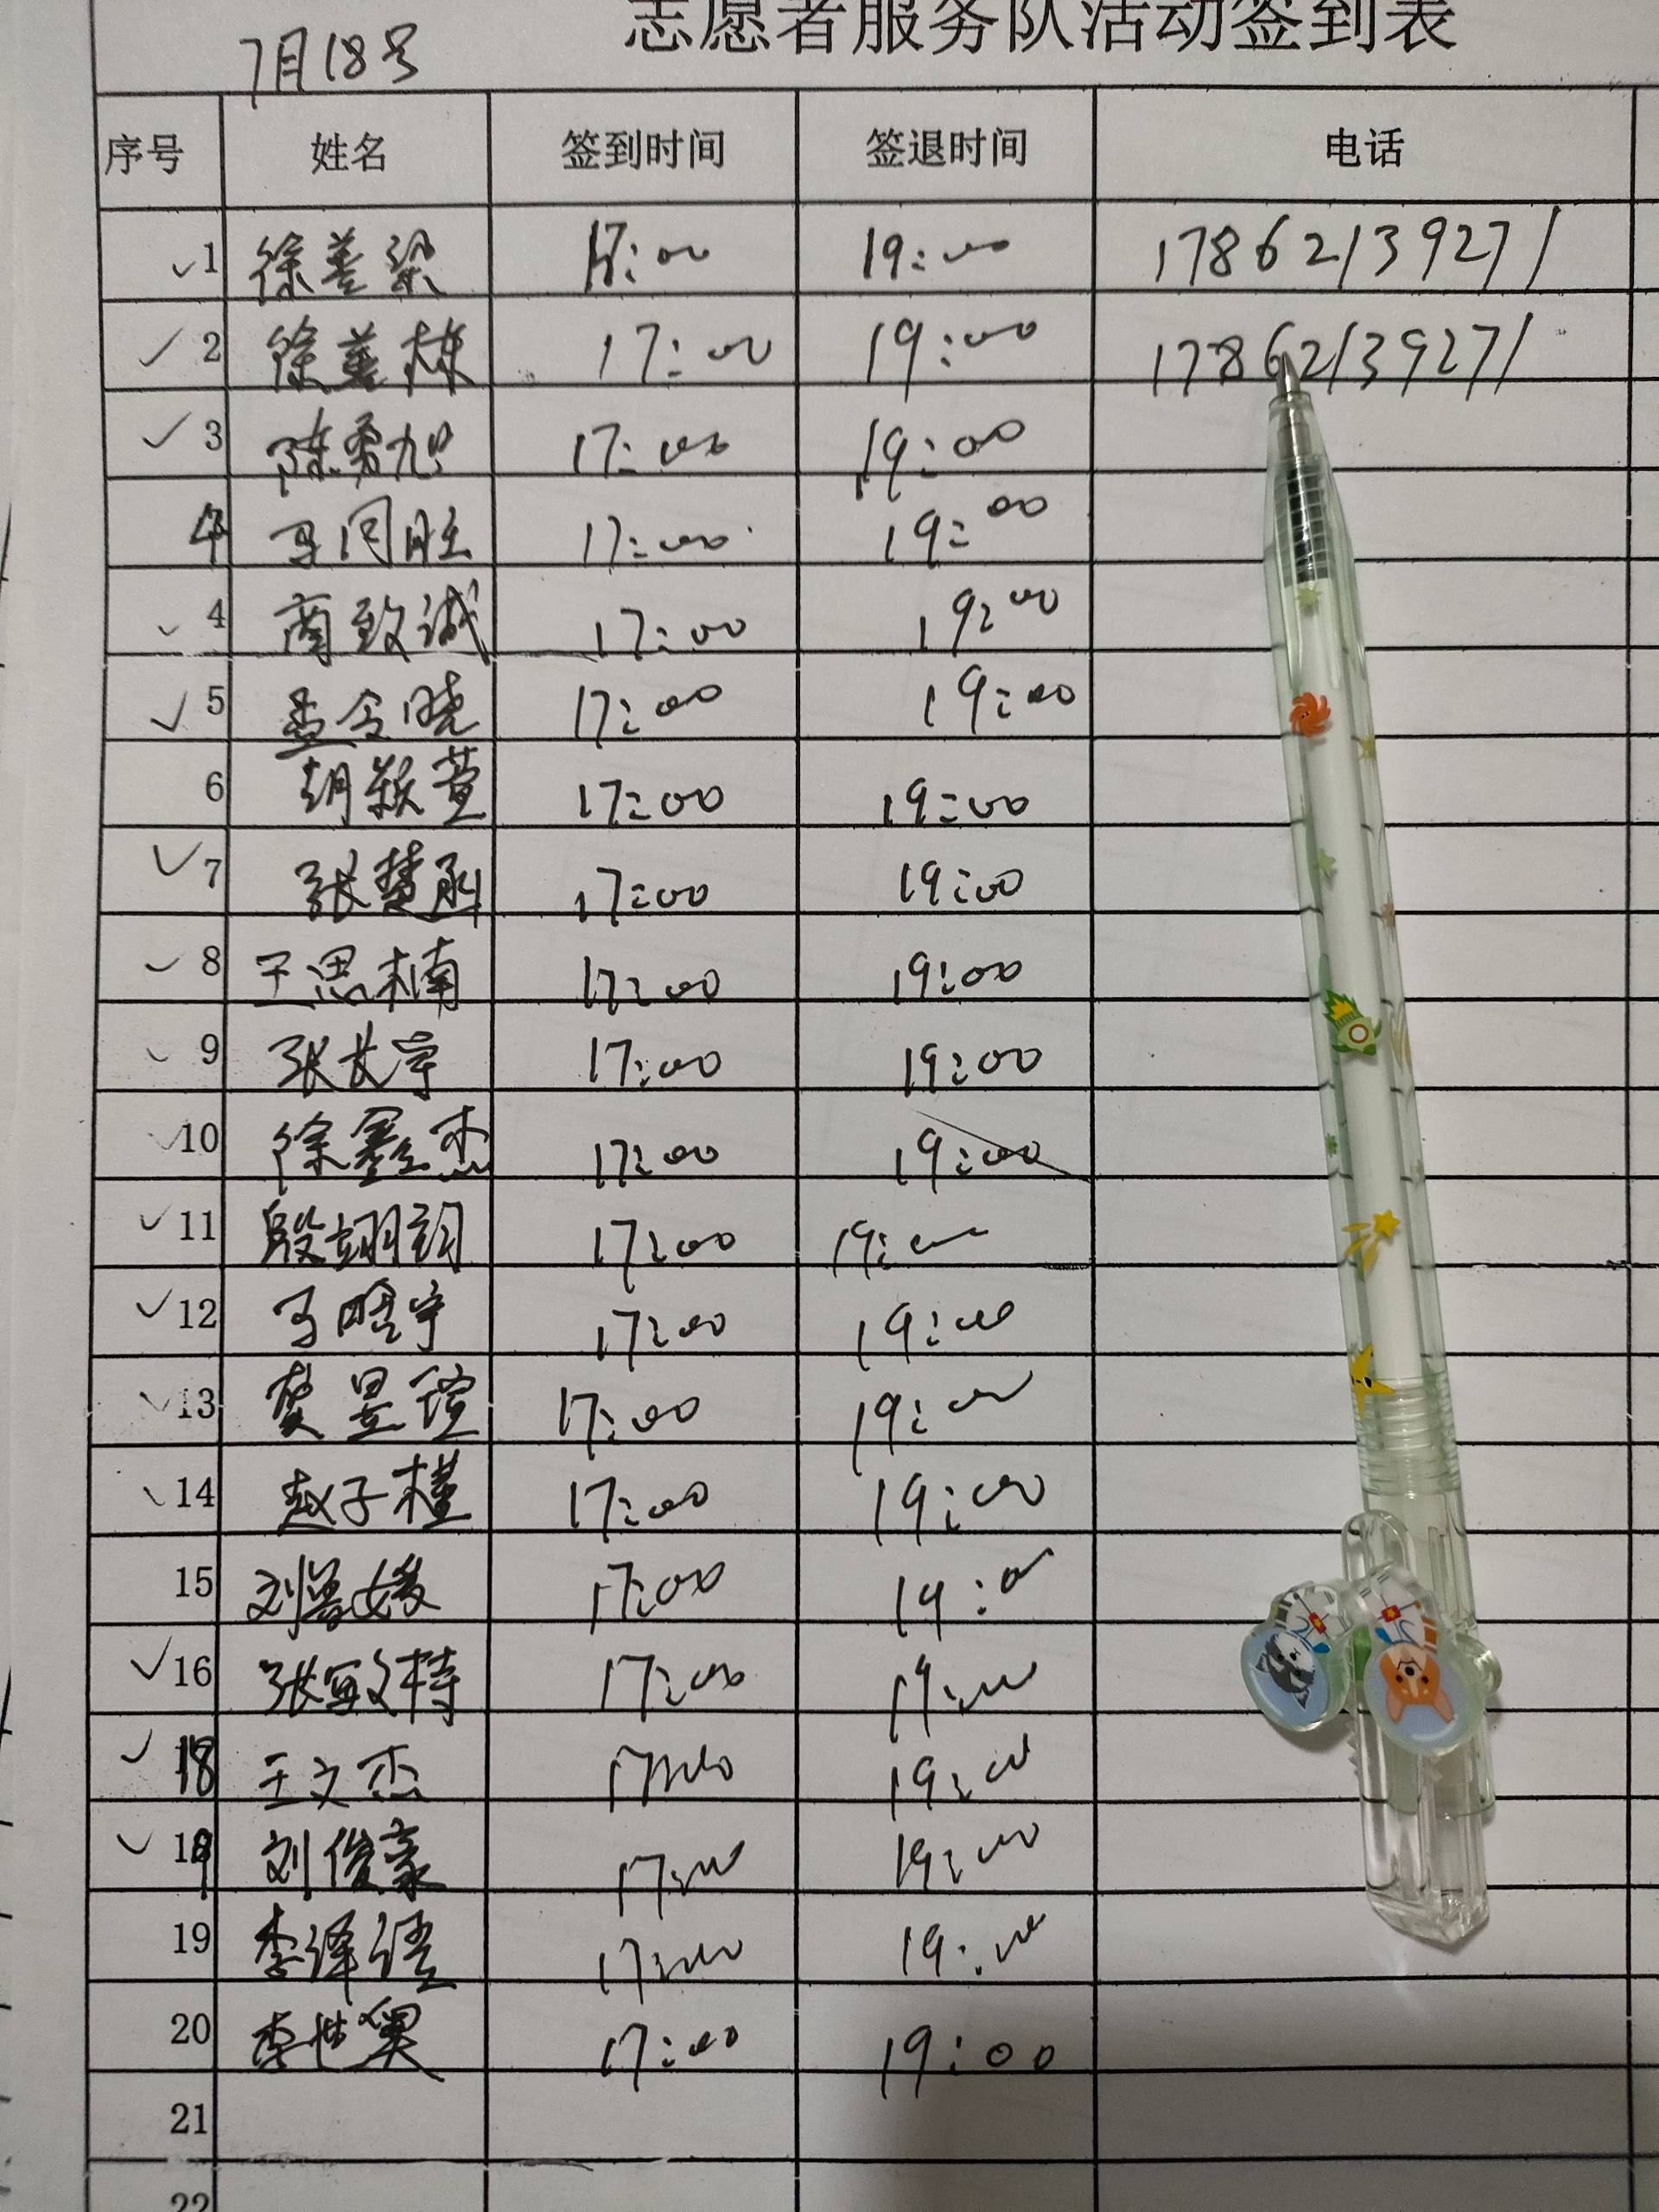 志愿者服务队活动签到表
7月18号
序号 姓名 签到时间 签退时间 电话
1 徐善梁 17:00 19:00 17862139271
2 徐善栋 17:00 19:00 17862139271
3 陈秀旭 17:00 19:00
4 马同旺 17:00 19:00
4 商致诚 17:00 19:00
5 孟令晓 17:00 19:00
6 胡颖萱 17:00 19:00
7 张慧函 17:00 19:00
8 王思楠 17:00 19:00
9 张长宇 17:00 19:00
10 徐鑫杰 17:00 19:00
11 殷翊钥 17:00 19:00
12 马晗宇 17:00 19:00
13 昱瑄 17:00 19:00
14 赵子槿 17:00 19:00
15 刘媛 17:00 19:00
16 张敏特 17:00 19:00
18 王文杰 17:00 19:00
19 刘俊豪 17:00 19:00
19 李泽 17:00 19:00
20 李世奥 17:00 19:00
21
22